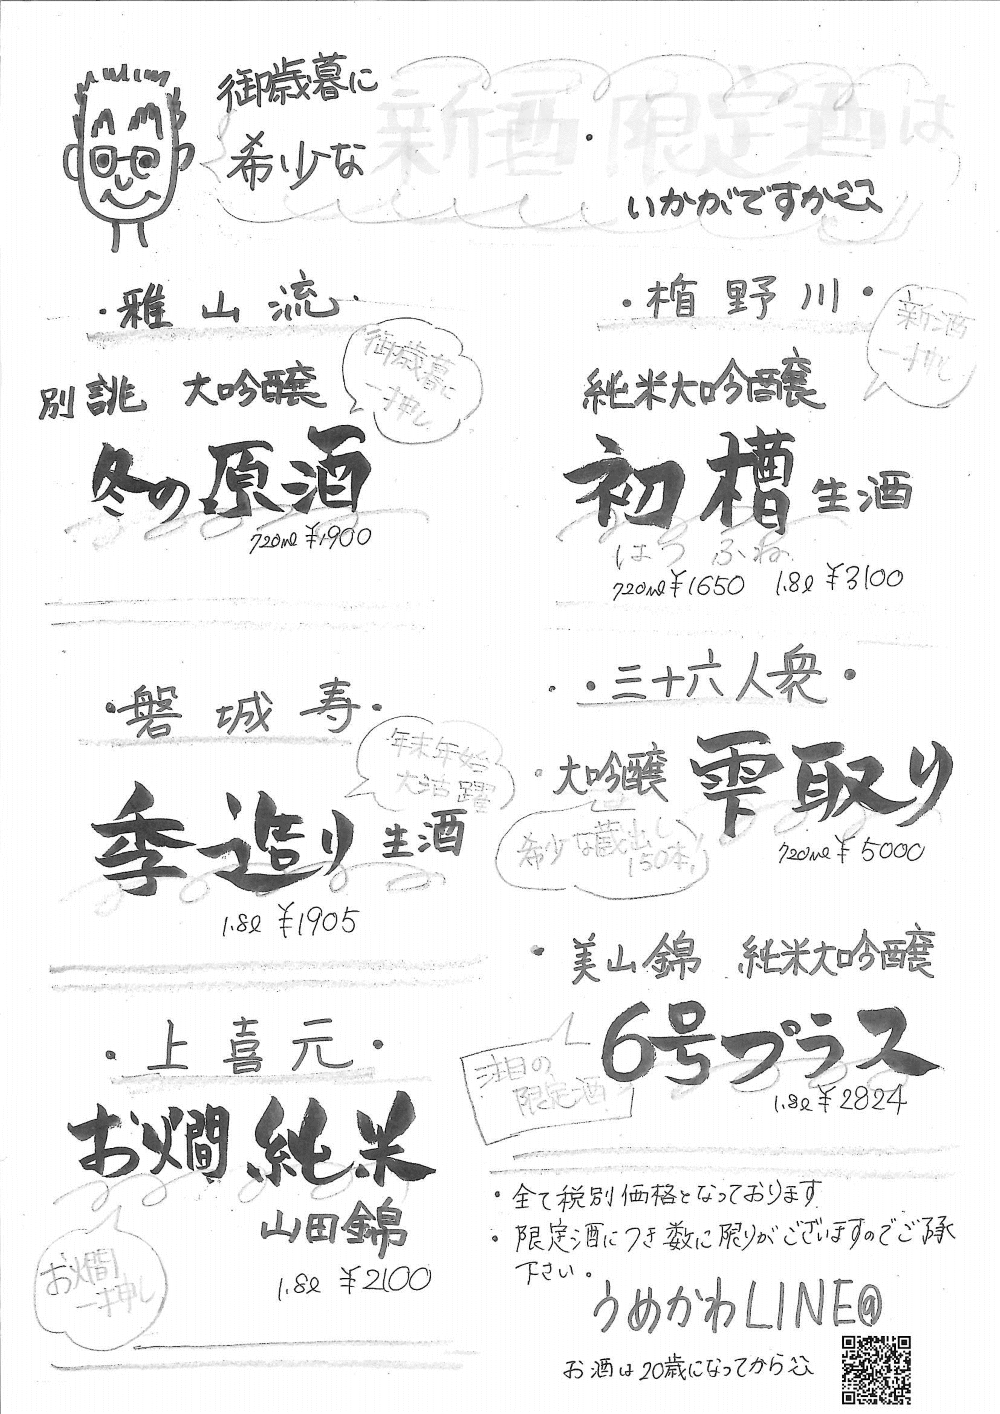 御歳暮に
希少な
新酒 限定酒は
いかがですか
・雅山流・
御歳暮に
一押し
別誂 大吟醸
冬の原酒
720ml ¥1900
・楯野川・
新酒
一押し
純米大吟醸
初槽 生酒
はつふね
720ml ¥1650 1.8l ¥3100
・磐城寿・
年末年始
大活躍
季造り 生酒
1.8l ¥1905
・三十六人衆・
・大吟醸 雫取り
希少な蔵出し
150本!
720ml ¥5000
・上喜元・
お燗純米
山田錦
お燗
一押し
1.8l ¥2100
・美山錦 純米大吟醸
6号プラス
注目の
限定酒
1.8l ¥2824
・全て税別価格となっております
・限定酒につき数に限りがございますのでご了承
下さい。
うめかわLINE@
お酒は20歳になってから